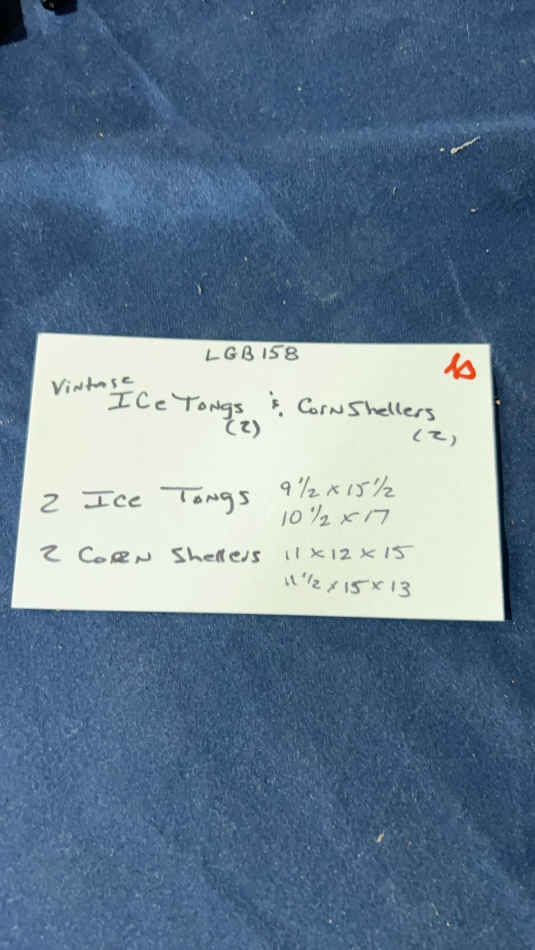 LGB158
Vintage
Ice Tongs & Corn Shellers
(2) (2)
2 Ice Tongs 9 1/2 x 15 1/2
10 1/2 x 17
2 Corn Shellers 11 x 12 x 15
11 1/2 x 15 x 13